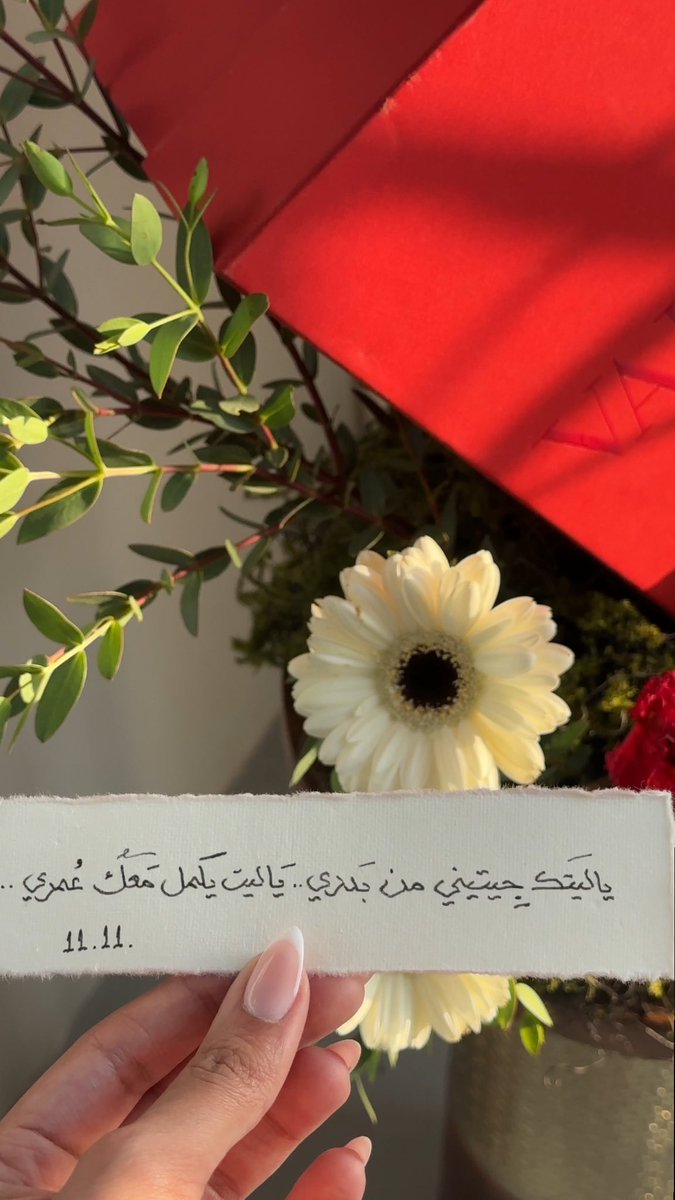 VA
ياليَتك جِيتيني من بَدري.. يَاليت يكمل مَعك عُمري ..
11.11.